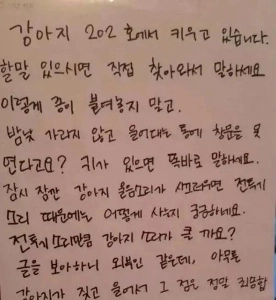 강아지 202 호에서 키우고 있습니다.
할말 있으시면 직접 찾아와서 말하세요
이렇게 종이 붙여놓지 말고.
밤낮 가리지 않고 울어대는 통에 창문을 못
연다고요? 귀가 있으면 똑바로 말하세요.
잠시 잠깐 강아지 울음소리가 시끄러우면 전투기
소리 때문에는 어떻게 사는지 궁금하네요.
전투기 소리만큼 강아지 소리가 클 까요?
글을 보아하니 외부인 같은데, 아무튼
강아지가 짖고 울어서 그 점은 정말 죄송합